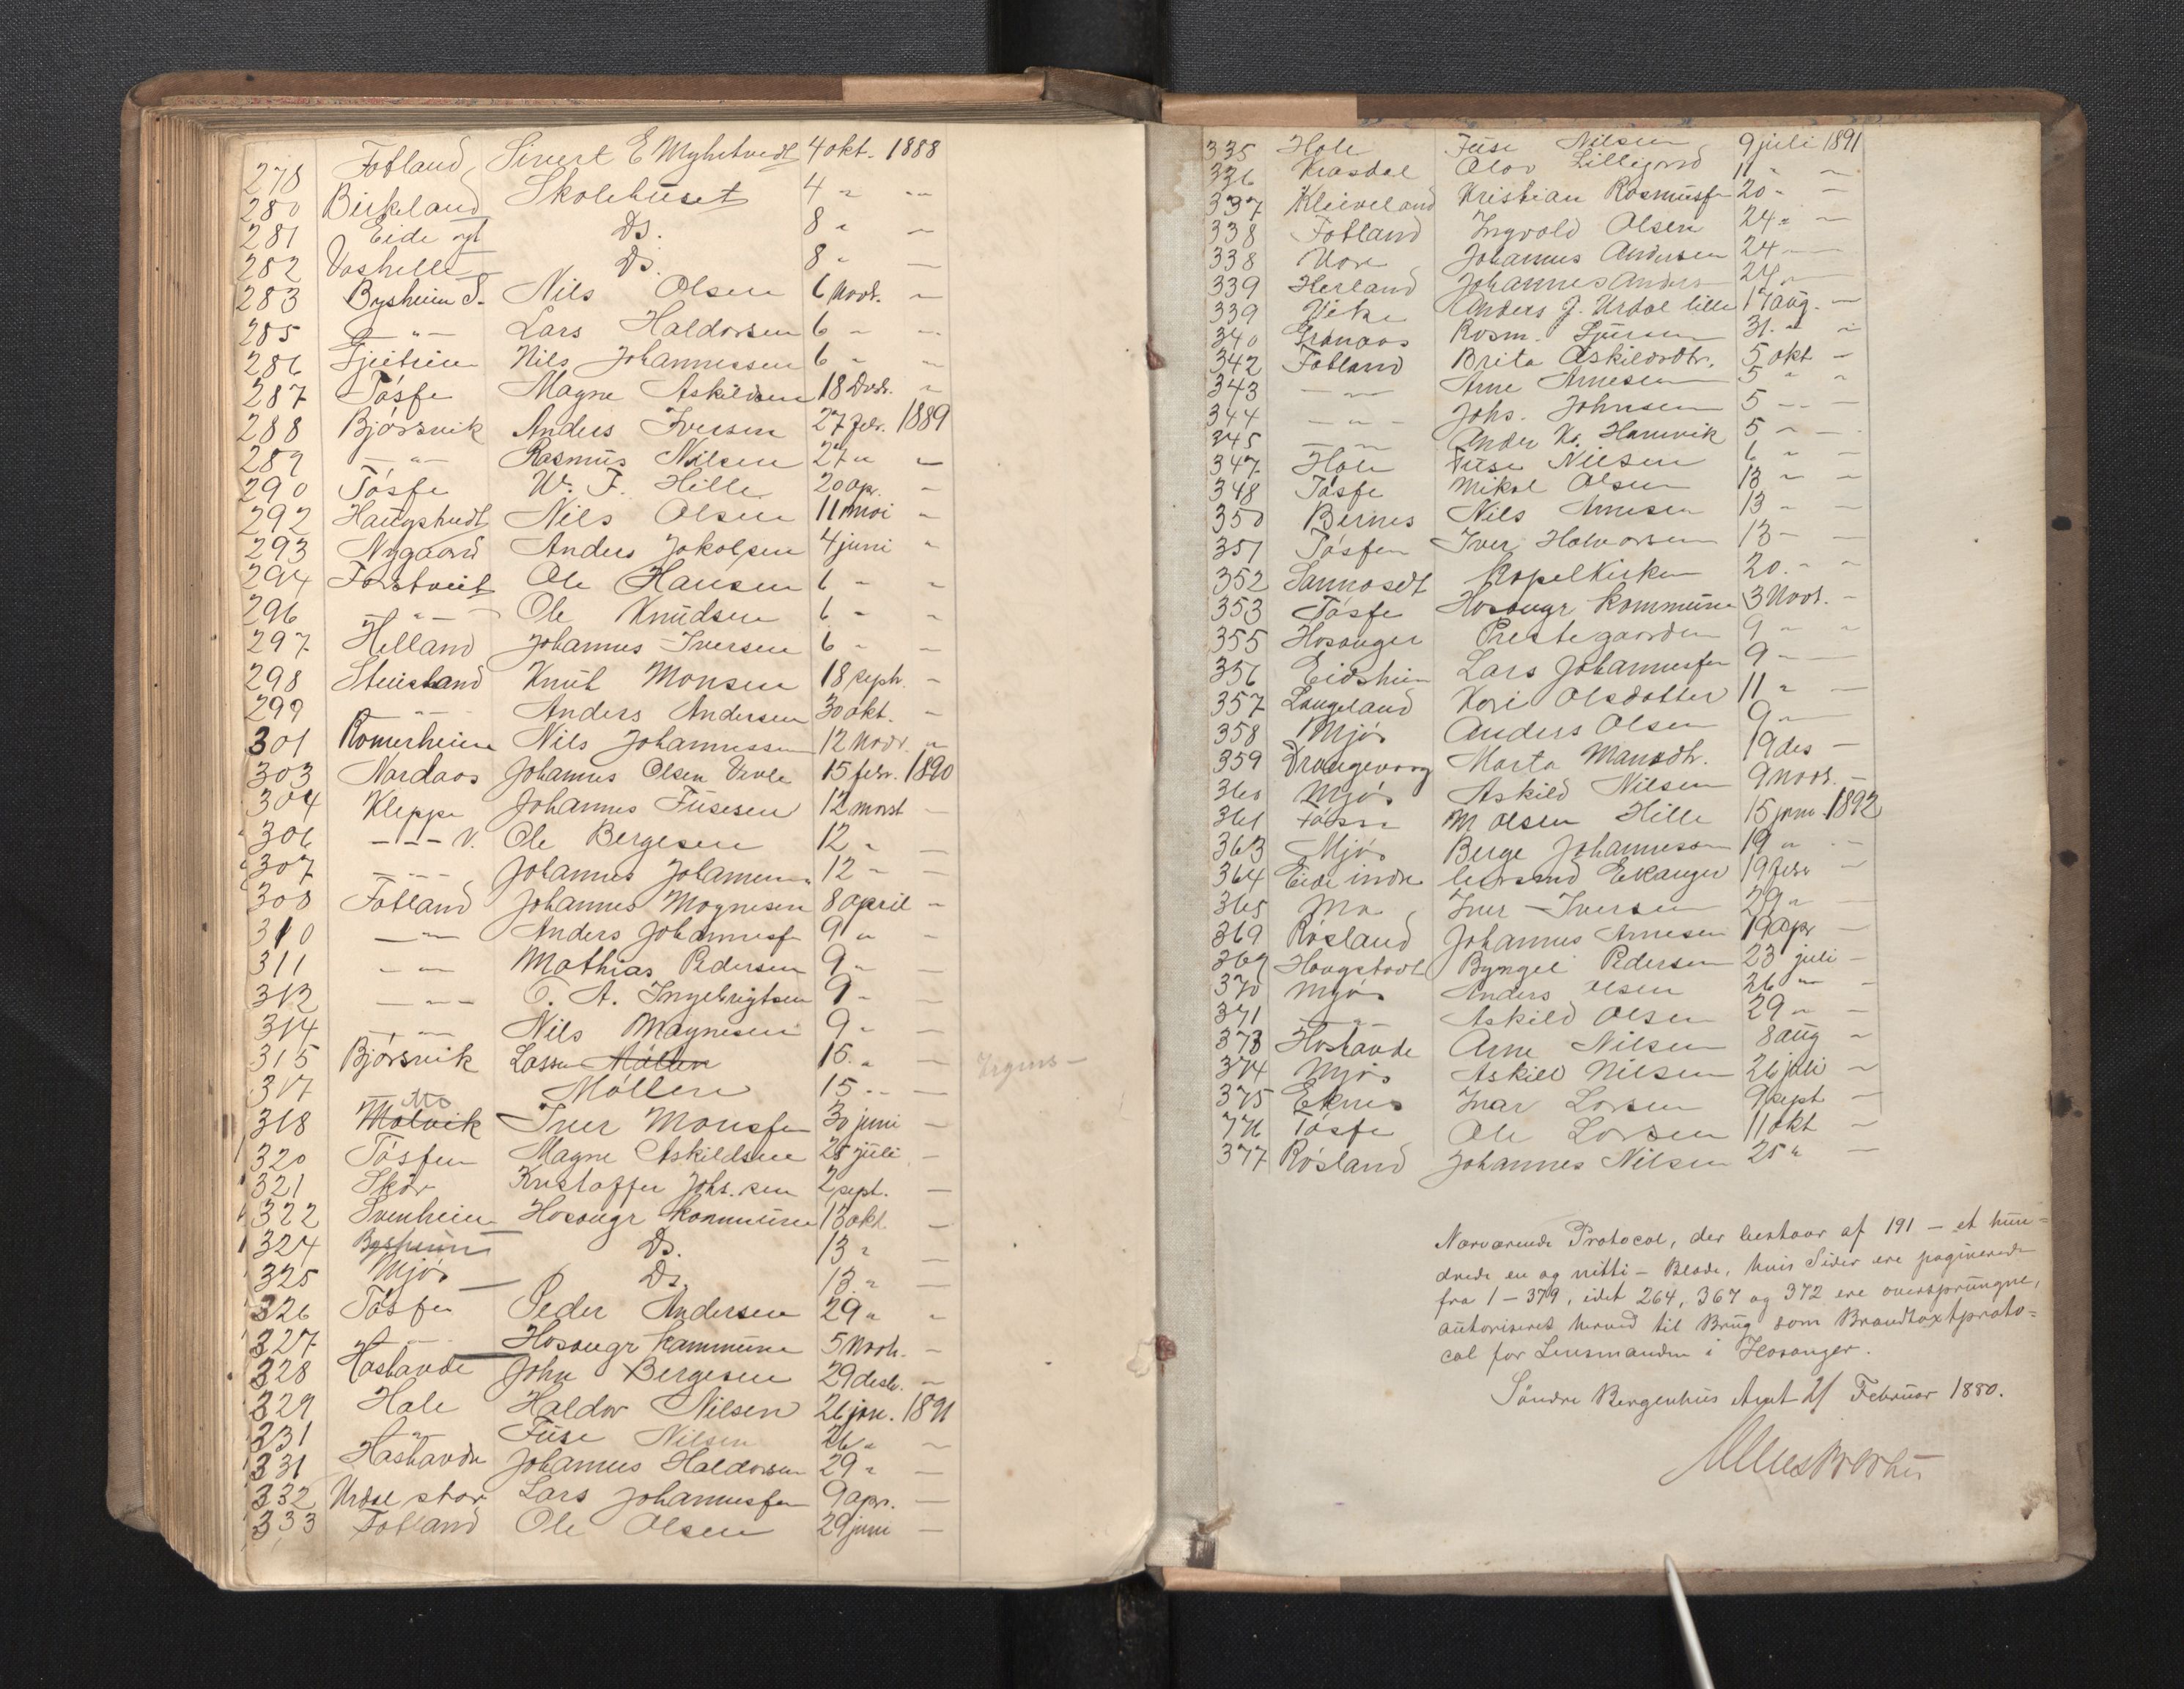 278 Fotland Sivert E Myhrtvedt 4 okt. 1888
280 Birkeland Skolehuset 4 " —
281 Eide ytt Ds. 8 " —
282 Vashelle Ds. 8 " —
283 Bysheim S. Nils Olsen 6 Novb. —
285 — " — Lars Haldorsen 6 " —
286 Nils Johannessen 6 " —
287 Tösse Magne Askildsen 18 Decb. "
288 Bjørsvik Anders Iversen 27 Febr. 1889
289 — " — Rasmus Nilsen 27 " —
290 Tösse W. F. Hille 20 apr. —
292 Haugstvedt Nils Olsen 11 mai "
293 Nygaard Anders Jakobsen 4 juni "
294 Forstveit Ole Hansen 6 " "
296 — " — Ole Knudsen 6 " "
297 Helland Johannes Iversen 6 " —
298 Steinsland Knut Monsen 18 septr. —
299 — " — Anders Andersen 30 okt. —
301 Romerheim Nils Johannessen 12 Novr. "
303 Nordaas Johannes Olsen 15 febr. 1890
304 Kleppe Johannes Fusesen 12 marst —
306 — - — V. Ole Bergesen 12 " —
307 — - — Johannes Johannesen 12 " —
308 Fotland Johannes Mognesen 8 april —
310 — " — Anders Johannesf 9 " —
311 — " — Mathias Pedersen 9 " —
312 — " — O. A. Ingebrigtsen 9 " —
314 — " — Nils Magnesen 9 " —
315 Bjørsvik Lassen Möllen 15 " —
317 Möllen 15 " —
Mo
318 Molvik Iver Monsen 30 juni —
320 Tösfen Magne Askildsen 25 juli —
321 Skår Kristoffer Johs.sen 2 sept. —
322 Svenheim Hosangr kommune 13 okt —
324 Bysheim Ds. 13 " —
325 Mjøs Ds. 13 " —
326 Tösfen Peder Andersen 29 " "
327 — " — Hosangr kommune 5 Novb. —
328 Hostavde John Bergesen 29 desb. —
329 Hole Haldor Nilsen 26 jan. 1891
331 — " — Fuse Nilsen 26 " —
331 Hastavde Johannes Haldorsen 29 " —
332 Urdal stor Lars Johannesfen 9 apr. —
333 Fotland Ole Olsen 29 juni —
335 Hole Fuse Nilsen 9 juli 1891
336 Krosdal Olav Lillejord 11 " —
337 Kleiveland Kristian Rasmusf 20 " —
338 Fotland Ingvald Olsen 24 " —
338 Johannes Andersen 24 " —
339 Herland Johannes Anders 24 " —
339 Vike Anders J. Urdal lille 17 aug. —
340 Granaas Rasm. 31. " "
342 Fotland Brita Askildsdtr. 5 okt —
343 — " — Arne Arnesen 5 " "
344 — " — Johs. Johnsen 5 " —
345 — " — Ander Ks. Hamvik 5 " —
347 Hole Fuse Nilsen 6 " —
348 Tösfe Mikal Olsen 13 " —
350 Bernes Nils Arnesen 13 " —
351 Tösfen Iver Halvorsen 13 " —
352 Sannosdt Kapelkirken 20. " "
353 Tösfe Hosangr kommune 3 Novb. —
355 Hosanger Prestegaarden 9 " "
356 Eidsheim Lars Johannesfen 9 " —
357 Langeland Kari Olsdatter 11 " —
358 Mjøs Anders Olsen 9 " —
359 Drangevaag Marta Mansdtr. 19 des —
360 Mjøs Askild Nilsen 9 Novb. —
361 M Olsen Hille 15 jan. 1892
363 Mjøs Berge Johannessen 19 " —
364 Eide indre Ekanger 19 febr —
365 Mo Iver Iversen 29 " —
369 Røsland Johannes Arnesen 19 apr —
369 Hougstvdt Byngel Pedersen 23 juli —
370 Mjøs Anders Olsen 26 " —
371 — " — Askild Olsen 29 " —
373 Hostavde Arne Nilsen 8 aug "
374 Mjøs Askild Nilsen 26 juli —
375 Eknes Ivar Larsen 9 sept —
776 Tösfe Ole Larsen 11 okt —
377 Røsland Johannes Nilsen 25 " —
Nærværende Protocol, der bestaar af 191 – et hun=
drede en og nitti – Blade, hvis Sider ere paginerede
fra 1 – 379, idet 264, 367 og 372 ere oversprungne,
autoriseres herved til Brug som Brandtaxtproto=
col for Lensmanden i Hosanger.
Söndre Bergenhus Amt 2/ Februar 1880.